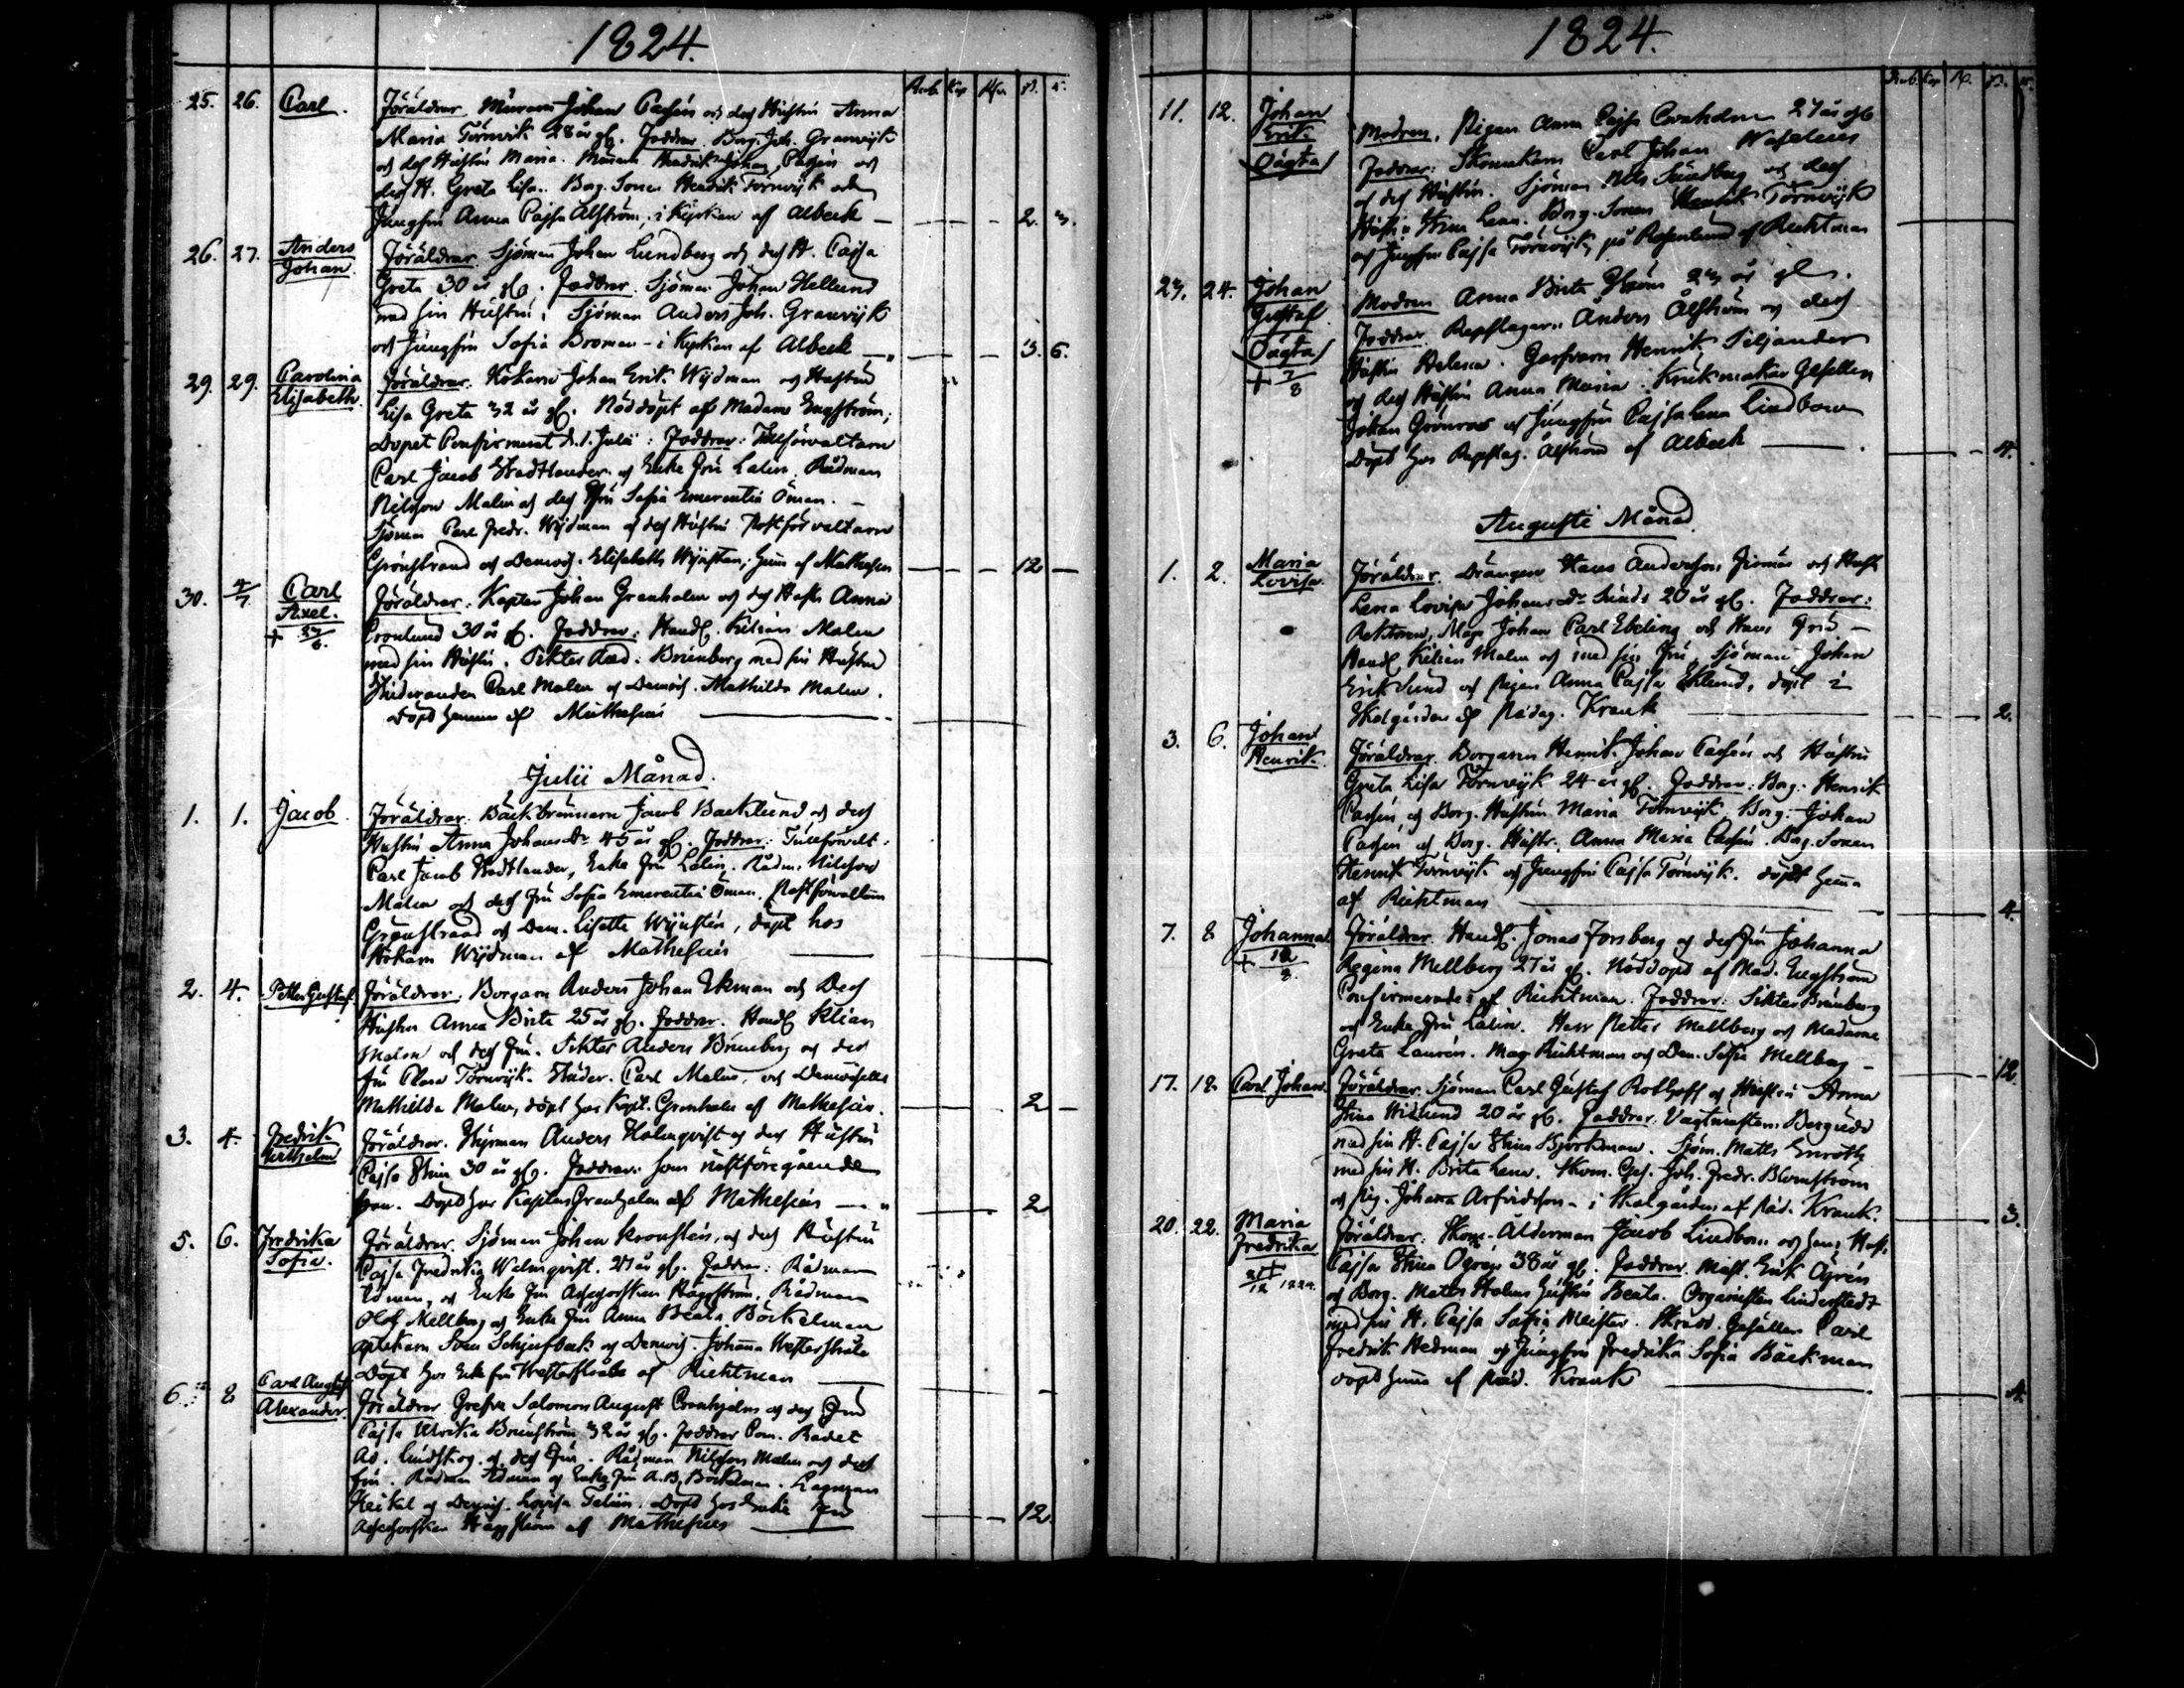 1824.
Rub. Kop. R. s.
25. 26. Carl. Föräldrar. Muraren Johan Cachén och des Hustru Anna
Maria Törnvik 28 år gl. Faddrar. Borg. Joh. Granwijk
och des Hustru Maria. Muraren Hendrik Johan Cachen och
des H. Greta Lisa. Borg. Sonen Hendrik Törnwijk och
Jungfru Anna Cajsa Alström, i Kyrkan af Albeck — 2. 3.
26. 27. Anders Johan. Föräldrar. Sjöman Johan Lundberg och des H. Cajsa
Greta 30 år gl. Faddrar. Sjöman Johan Hellund
med sin Hustru. Sjöman Anders Joh. Granwijk
och Jungfru Sofia Broman - i Kyrkan af Albeck — 3. 6.
29. 29. Carolina Elisabeth. Föräldrar. Hökaren Johan Erik Wijdman och Hustrun
Lisa Greta 32 år gl. Nöddöpt af Madame Engström,
Dopet Confirmerat d. 1. Julii: Faddrar: Tullförvaltaren
Carl Jacob Stadtlander och Enke Fru Lalin. Rådman
Nilsson Malm och des Fru Sofia Emerentia Öman. —
Sjöman Carl Fredr. Wijdman och des Hustru Postförvaltaren
Grönstrand och Demois. Elisabeth Wijnsten, hemma af Mathesius — 12 —
30. 4/7 Carl Axel. + Föräldrar. Kapten Johan Granholm och des Hustru Anna
Cronlund 30 år gl. Faddrar. Handl. Kilian Malm
med sin Hustru. Sikter And. Brunberg med sin Hustru
Studeranden Carl Malm och Demois. Mathilda Malm.
Döpt hemma af Mathesius —
Julii Månad.
1. 1. Jacob. Föräldrar. Bäckbrännaren Jacob Backlund och des
Hustru Anna Johansdr 45 år gl. Faddrar: Tullförvalt.
Carl Jacob Stadtlander, Enke Fru Lalin. Rådm. Nilsson
Malm och des Fru Sofia Emerentia Öman. Postförvaltaren
Grönstrand och Dem. Lisette Wijnstén, döpt hos
Hökaren Wijdman af Mathesius —
2. 4. Petter Gustaf. Föräldrar. Borgaren Anders Johan Ekman och Des
Hustru Anna Brita 25 år gl. Faddrar. Handl. Kilian
Malm och des Fru. Sikter Anders Brunberg och des
Fru Clara Törnwijk. Studer. Carl Malm, och Demoiselle
Mathilda Malm, döpt hos Kapt. Granholm af Mathesius. — 2 —
3. 4. Fredrik Wilhelm Föräldrar. Styrman Anders Holmqvist och des Hustru
Cajsa Stina 30 år gl. Faddrar: som nästföregående
Döpt hos Kapten Granholm af Mathesius — 2
5. 6. Fredrika Sofia. Föräldrar. Sjöman Johan Kronstén, och des Hustru
Cajsa Fredrika Walmqvist. 27 år gl. Faddrar: Rådman
Edman, och Enke Fru Assessorskan Häggström. Rådman
Olof Mellberg och Enke Fru Anna Beata Böckelman
Apotekaren Sven Schjerfbeck och Demois. Johanna Westerstråle
Döpt hos Enke fru Westerstråle af Richtman —
6. 8 Carl August Alexander. Föräldrar. Grefve Salomon August Cronhjelm och des Fru
Cajsa Ulrika Brunström 32 år gl. Faddrar Com. Rådet
Ad. Lindskog och des Fru. Rådman Nilsson Malm och des
Fru. Rådman Edman och Enke Fru A. B. Böckelman. Lagman
Heikel och Demois. Lovisa Talin. Döpt hos Enke Fru
Assessorskan Häggström af Mathesius — 12.
1824.
Rub. Kop. R. s.
11. 12. Johan Erik. Oägta Modren. Pigan Anna Cajsa 27 år gl.
Faddrar: Skomakaren Carl Johan Waselius
och des Hustru. Sjöman Nils Sundberg och des
Hustru Stina Lena. Borg. Sonen Henrik Törnwijk
och Jungfru Cajsa Törnwijk, på Rosenlund af Richtman
23. 24. Johan Gustaf. Oägta + 7/8 Modren Anna Brita Ström 23 år gl.
Faddrar. Repslagaren Anders Ålström och des
Hustru Helena. Garfvaren Henrik Siljander
och des Hustru Anna Maria. Krukmakar Gesellen
Johan Grönroos och Jungfru Cajsa Lena Lindbom
Döpt hos Repslag. Ålström af Albeck — 4.
Augusti Månad.
1. 2. Maria Lovisa. Föräldrar. Drängen Hans Andersson och Hust.
Lena Lovisa Johansdr Sund 20 år gl. Faddrar:
Rektoren, Mag. Johan Carl Ebeling och Hans Fru —
Handl. Kilian Malm och med sin Fru, Sjöman Johan
Erik Sund och pigan Anna Cajsa Eklund, döpt i
Skolgården af Pädag. Krank — 2.
3. 6. Johan Henrik. Föräldrar Borgaren Henrik Johan Cachén och Hustru
Greta Lisa Törnwijk 24 år gl. Faddrar: Borg. Henrik
Cachén, och Borg. Hustrun Maria Törnwijk. Borg. Johan
Cachen och Borg. Hustr. Anna Maria Cachén. Borg. Sonen
Henrik Törnwijk och Jungfru Cajsa Törnwijk. döpt hemma
af Richtman — 4.
7. 8 Johanna + Föräldrar. Handl. Jonas Forsberg och des Fru Johanna
Regina Mellberg 27 år gl. Nöddöpt af Mad. Engström
Confirmerades af Richtman. Faddrar: Sikter Brunberg
och Enke Fru Lalin. Herr Petter Mellberg och Madame
Greta Laurén. Mag. Richtman och Dem. Sofia Mellberg — 12.
17. 18. Carl Johan Föräldrar. Sjöman Carl Gustaf Rothoff och Hustru Anna
Stina Widlund 20 år gl. Faddrar. Vagtmästaren Bergudd
med sin H. Cajsa Stina Björkman. Sjöm. Matts Enroth
med sin H. Brita Lena. Skom. Ges. Joh. Fredr. Blomström
och Pig. Johanna Arfvidsson - i Skolgården af Päd. Krank. — 3.
20. 22. Maria Fredrika 21+/12 1824. Föräldrar: Skom. Ålderman Jacob Lindbom och hans Hust.
Cajsa Stina Ögrén 38 år gl. Faddrar. Mäst. Erik Ögrén
och Borg. Matts Holms Hustru Beata. Organisten Linderstedt
med sin H. Cajsa Sofia Meister. Skrädd. Gesällen Carl
Fredrik Hedman och Jungfru Fredrika Sofia Bäckman
döpt hemma af Päd. Krank — 4.